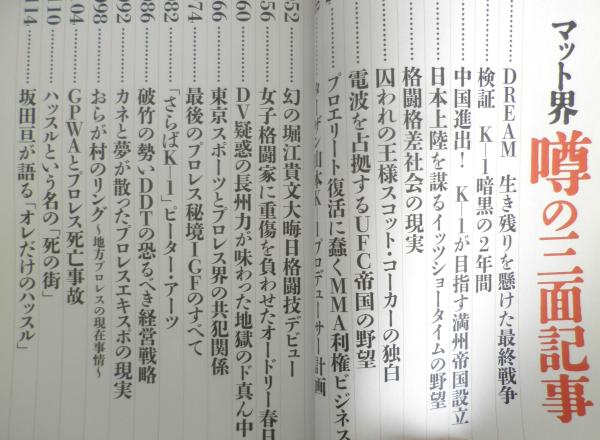 マット界
噂の三面記事
DREAM 生き残りを懸けた最終戦争
検証 K-1暗黒の2年間
中国進出! K-1が目指す満州帝国設立
日本上陸を謀るイッツショータイムの野望
格闘格差社会の現実
囚われの王様スコット・コーカーの独白
電波を占拠するUFC帝国の野望
プロエリート復活に蠢くMMA利権ビジネス
ターザン山本K-1プロデューサー計画
52 幻の堀江貴文大晦日格闘技デビュー
56 女子格闘家に重傷を負わせたオードリー春日
60 DV疑惑の長州力が味わった地獄のド真ん中
66 東京スポーツとプロレス界の共犯関係
74 最後のプロレス秘境IGFのすべて
82 「さらばK-1」ピーター・アーツ
86 破竹の勢いDDTの恐るべき経営戦略
92 カネと夢が散ったプロレスエキスポの現実
98 おらが村のリング〜地方プロレスの現在事情〜
104 GPWAとプロレス死亡事故
110 ハッスルという名の「死の街」
114 坂田亘が語る「オレだけのハッスル」